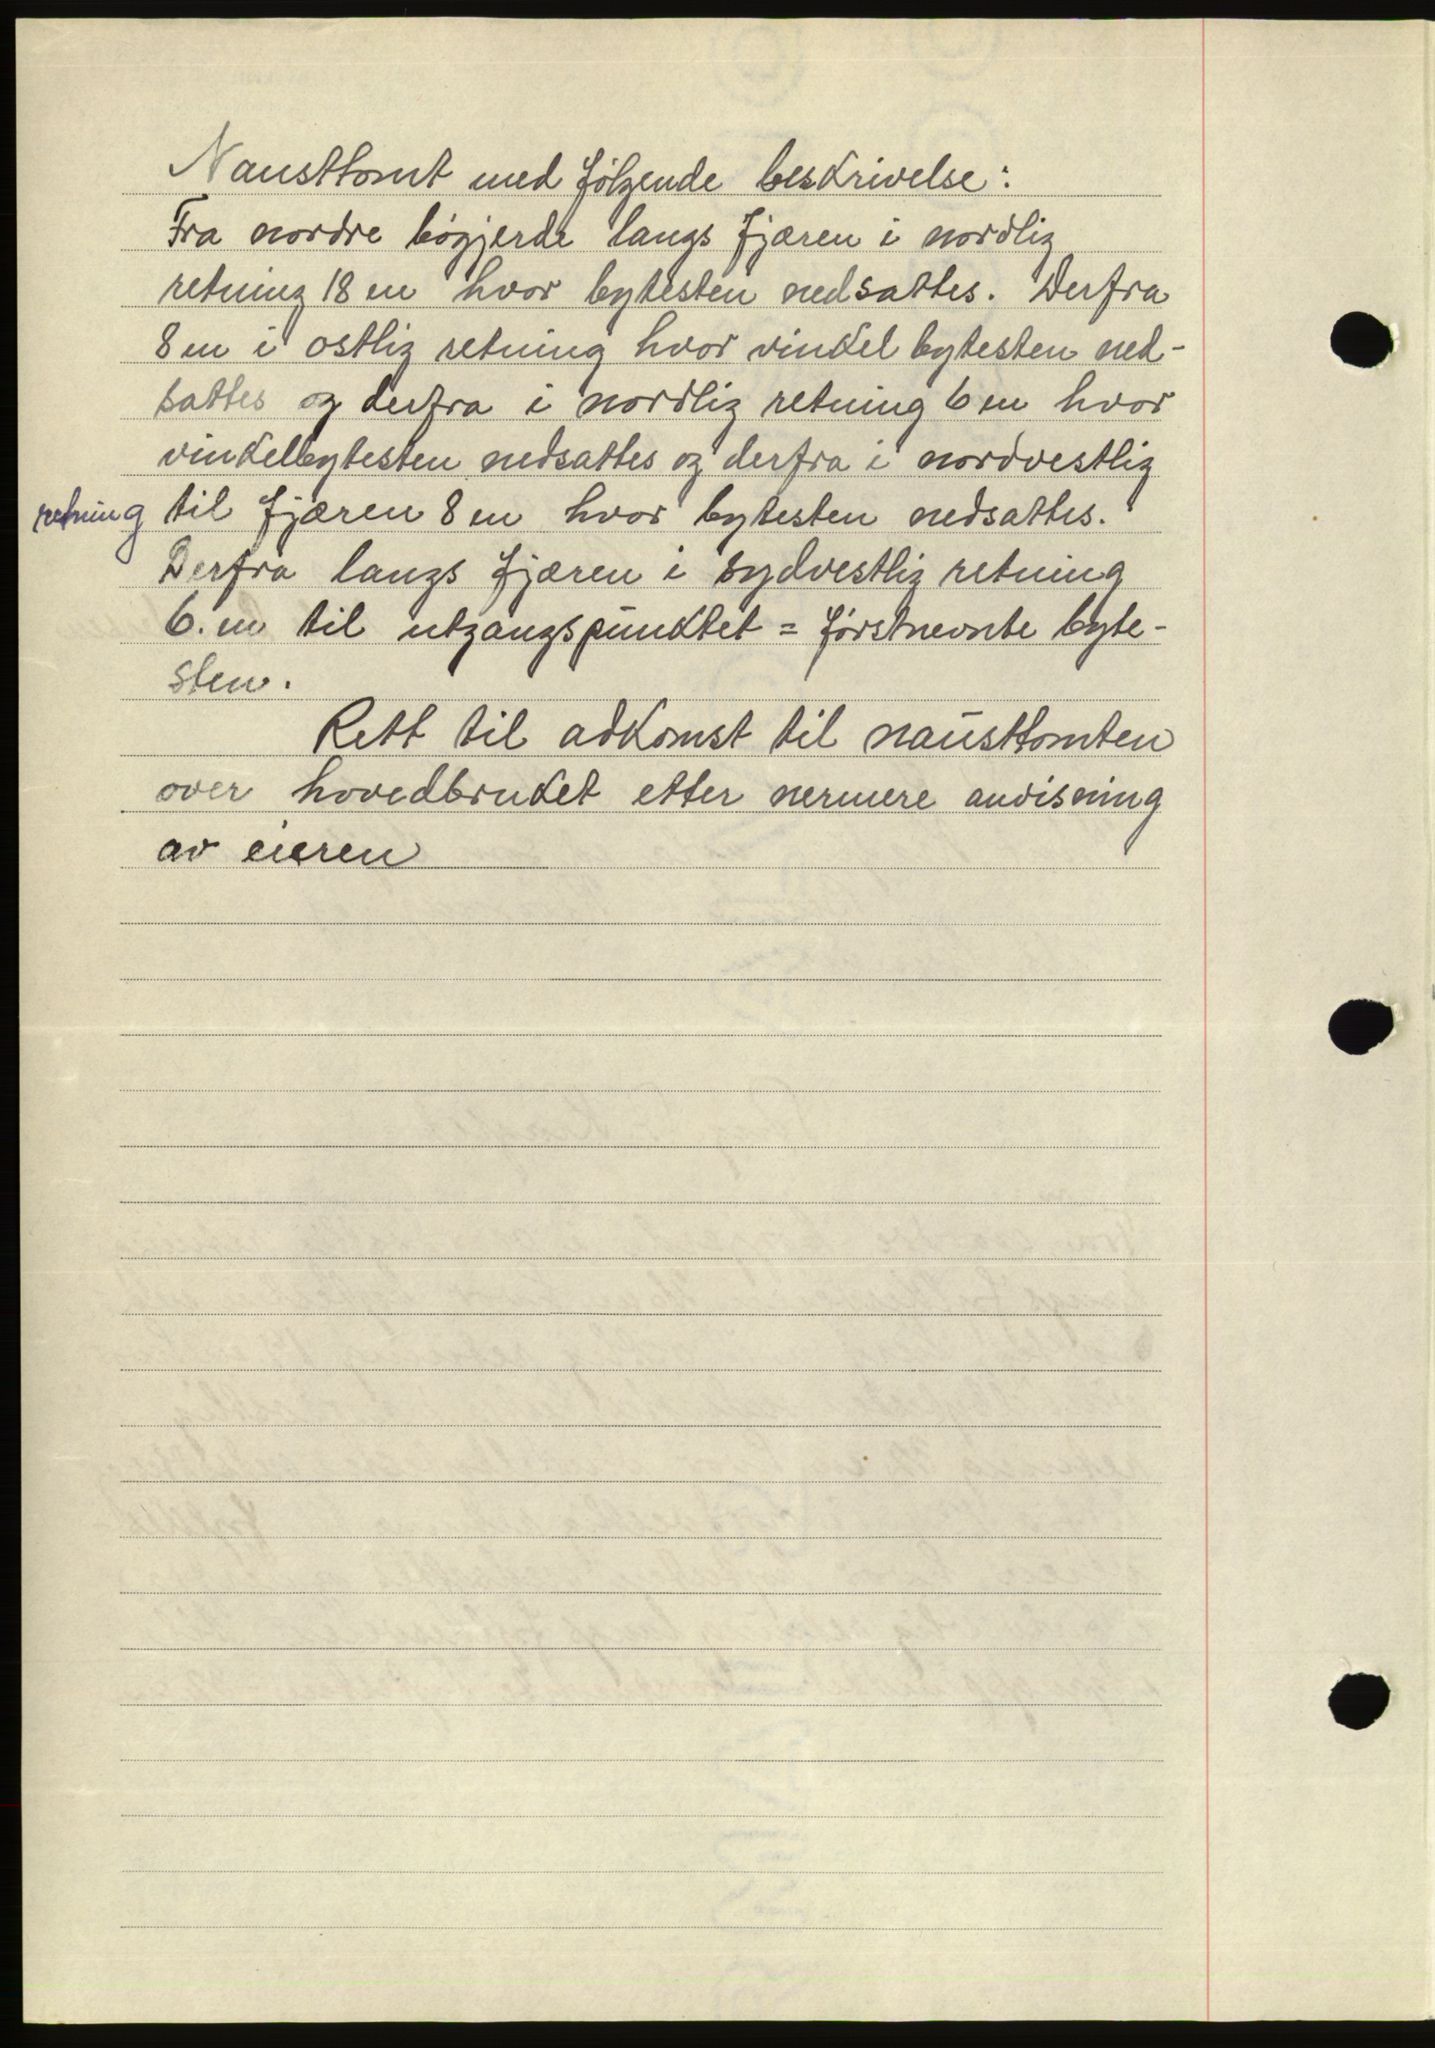 Nausttomt med følgende beskrivelse:
Fra nordre bøgjerde langs fjæren i nordlig
retning 18 m hvor bytesten nedsattes. Derfra
8 m i ostlig retning hvor vinkel bytesten ned-
sattes og derfra i nordlig retning 6 m hvor
vinkelbytesten nedsattes og derfra i nordvestlig
retning til fjæren 8 m hvor bytesten nedsattes.
Derfra langs fjæren i sydvestlig retning
6. m til utgangspunktet = førstnevnte byte-
sten.
Rett til adkomst til nausttomten
over hovedbruket etter nermere anvisning
av eieren